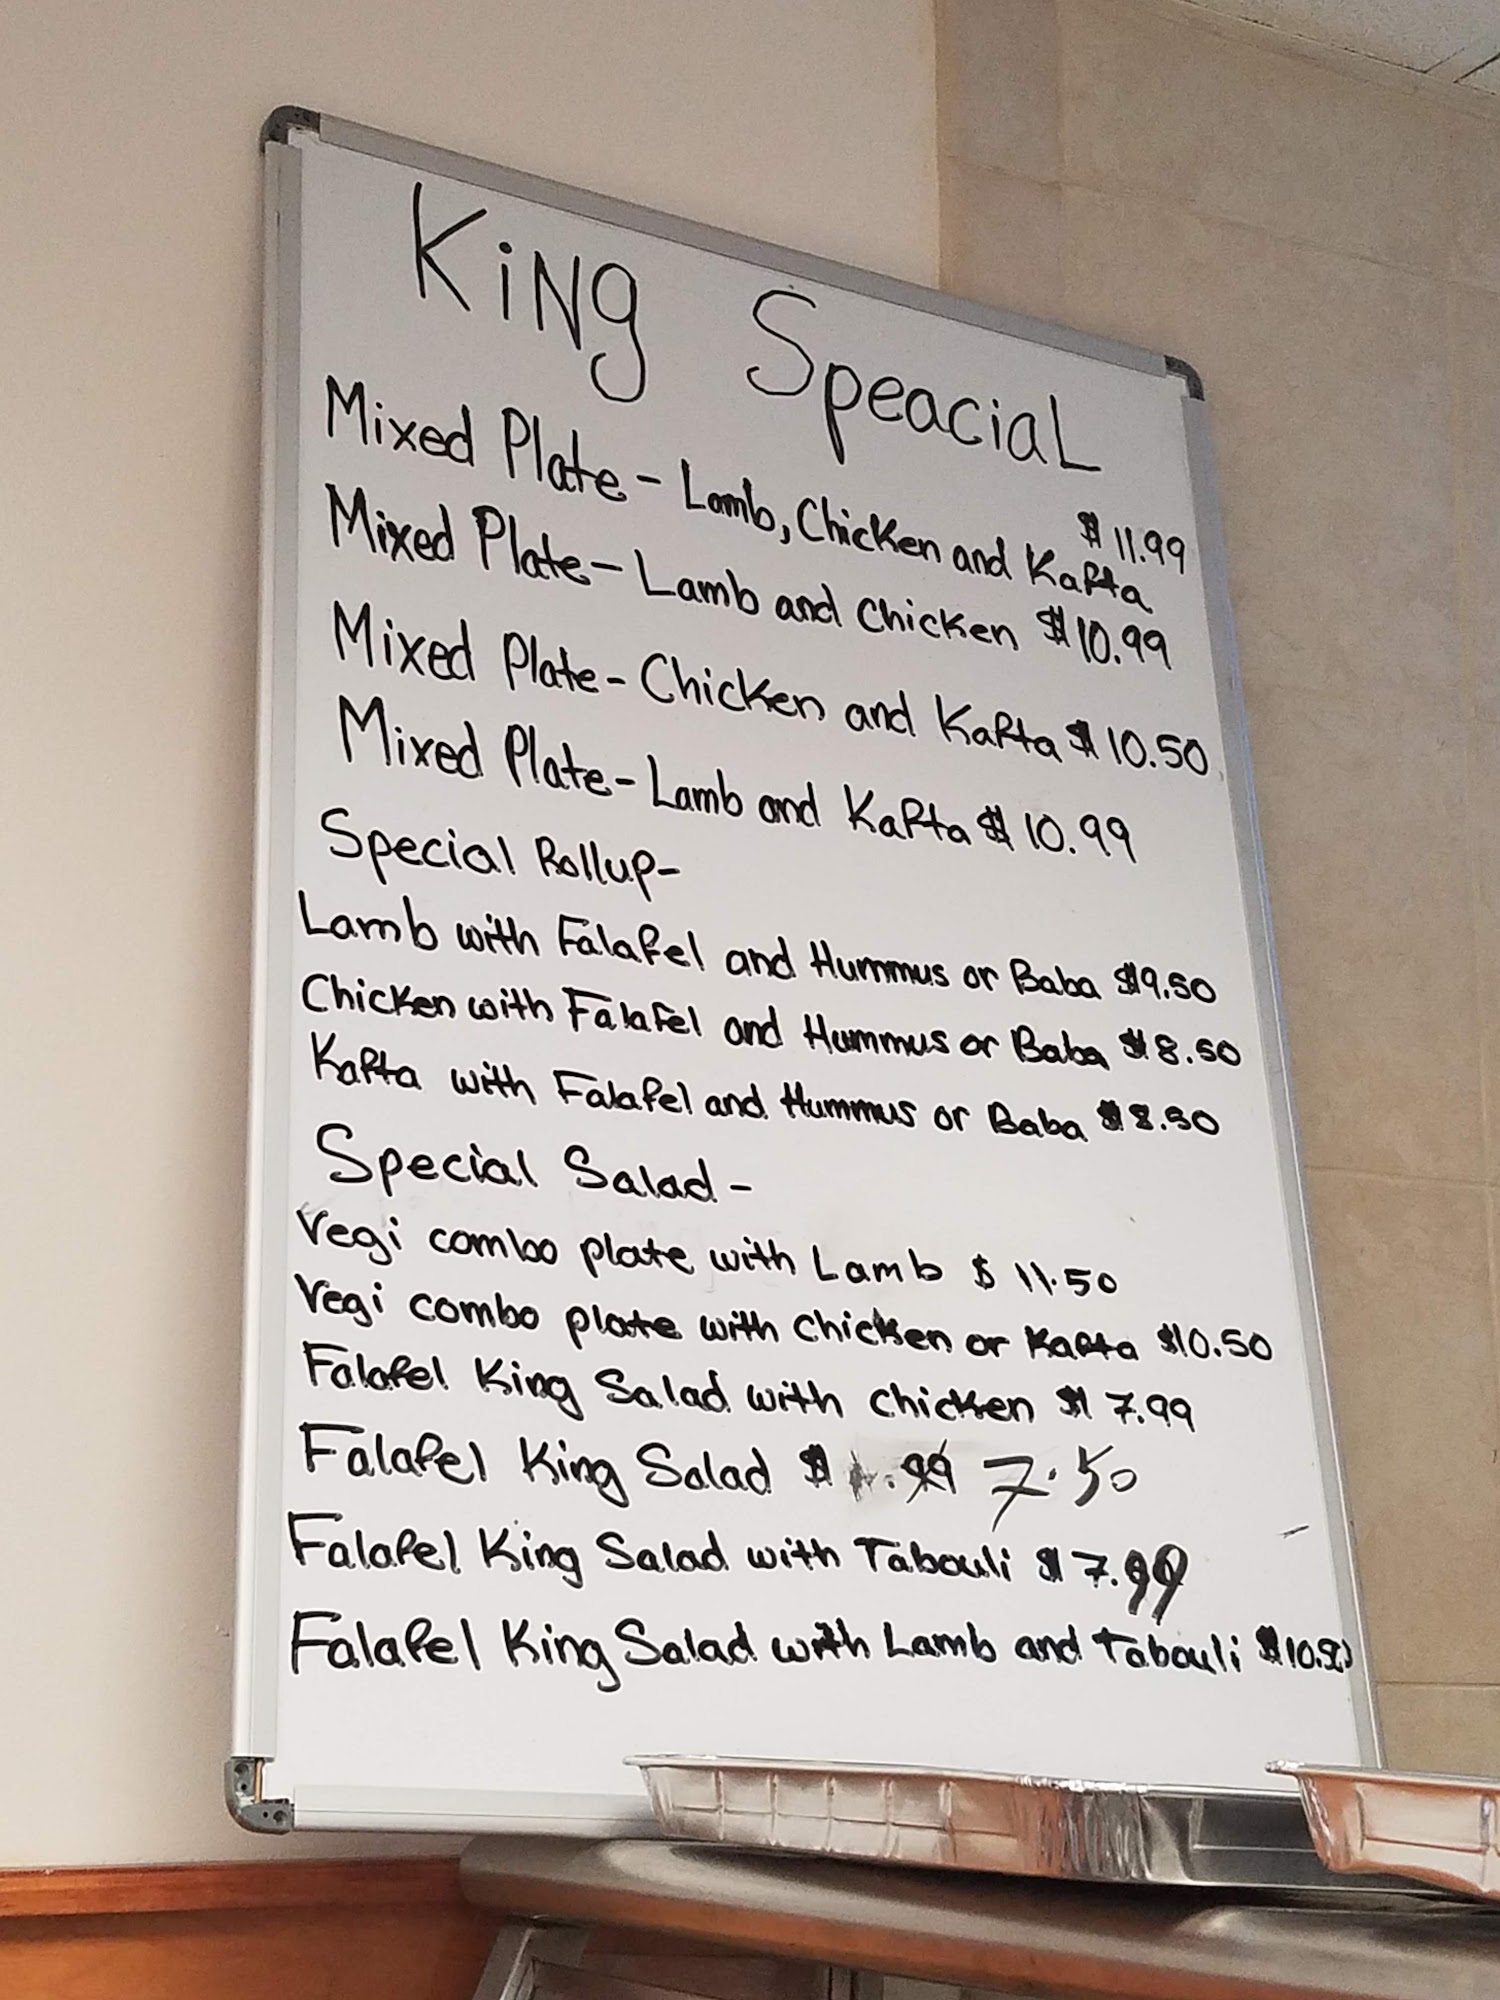 KiNg SpeaciaL
Mixed Plate - Lamb, Chicken and Kafta $11.99
Mixed Plate - Lamb and Chicken $10.99
Mixed Plate - Chicken and Kafta $10.50
Mixed Plate - Lamb and Kafta $10.99
Special Rollup-
Lamb with Falafel and Hummus or Baba $9.50
Chicken with Falafel and Hummus or Baba $8.50
Kafta with Falafel and Hummus or Baba $8.50
Special Salad -
Vegi combo plate with Lamb $11.50
Vegi combo plate with Chicken or Kafta $10.50
Falafel King Salad with Chicken $7.99
Falafel King Salad $ .99 7.50
Falafel King Salad with Tabouli $7.99
Falafel King Salad with Lamb and Tabouli